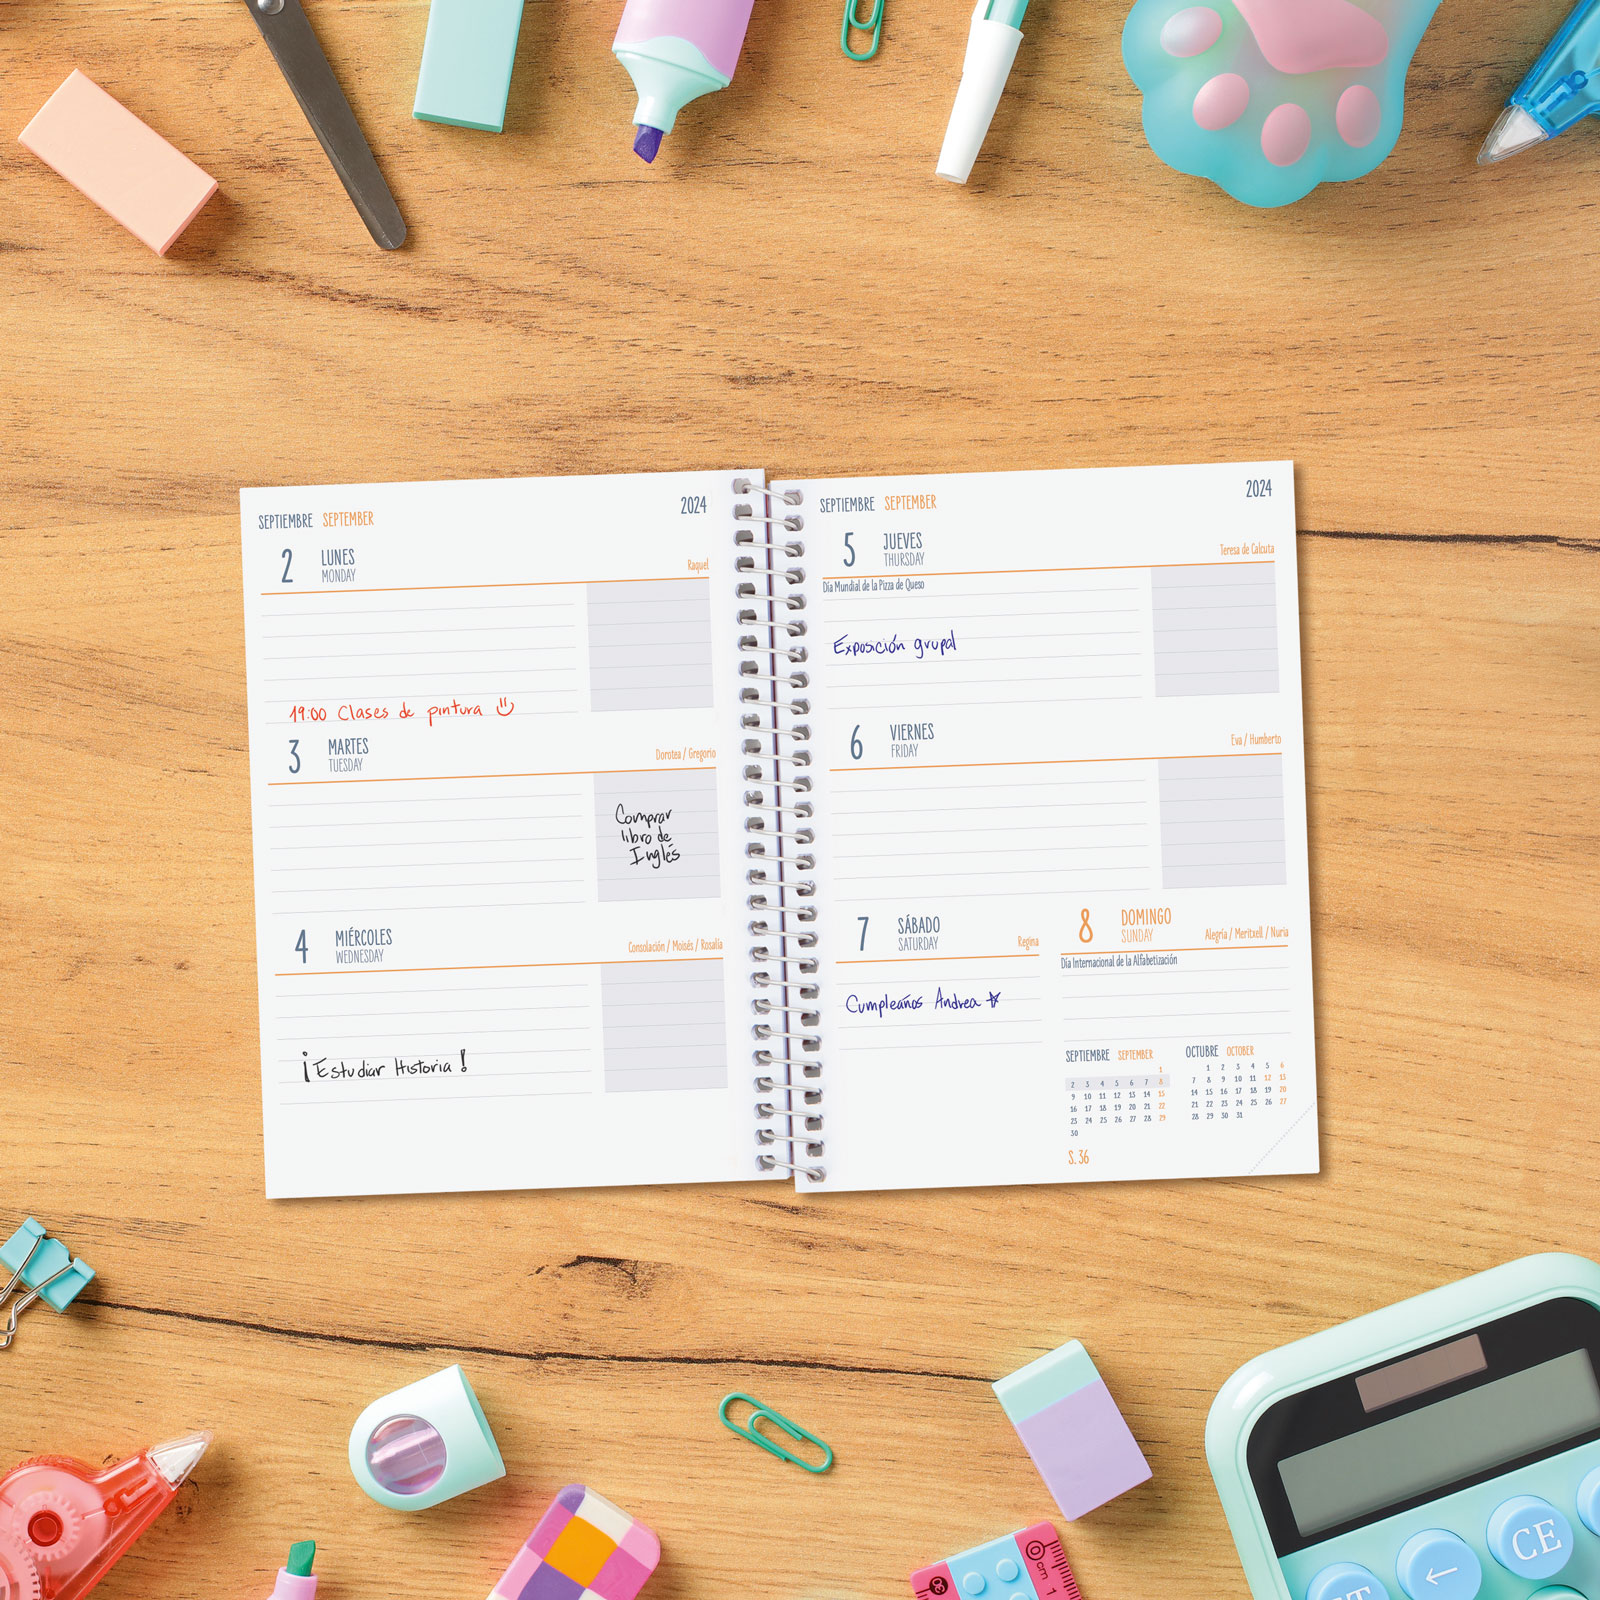 SEPTIEMBRE SEPTEMBER 2024
2 LUNES
MONDAY
Raquel
19:00 Clases de pintura
3 MARTES
TUESDAY
Dorotea / Gregorio
Comprar
libro de
Inglés
4 MIÉRCOLES
WEDNESDAY
Consolación / Moisés / Rosalía
¡Estudiar Historia!
SEPTIEMBRE SEPTEMBER 2024
5 JUEVES
THURSDAY
Teresa de Calcuta
Día Mundial de la Pizza de Queso
Exposición grupal
6 VIERNES
FRIDAY
Eva / Humberto
7 SÁBADO
SATURDAY
Regina
Cumpleaños Andrea
8 DOMINGO
SUNDAY
Alegría / Meritxell / Nuria
Día Internacional de la Alfabetización
SEPTIEMBRE SEPTEMBER
1
2 3 4 5 6 7 8
9 10 11 12 13 14 15
16 17 18 19 20 21 22
23 24 25 26 27 28 29
30
S. 36
OCTUBRE OCTOBER
1 2 3 4 5 6
7 8 9 10 11 12 13
14 15 16 17 18 19 20
21 22 23 24 25 26 27
28 29 30 31
0 cm 1
30
CE
←